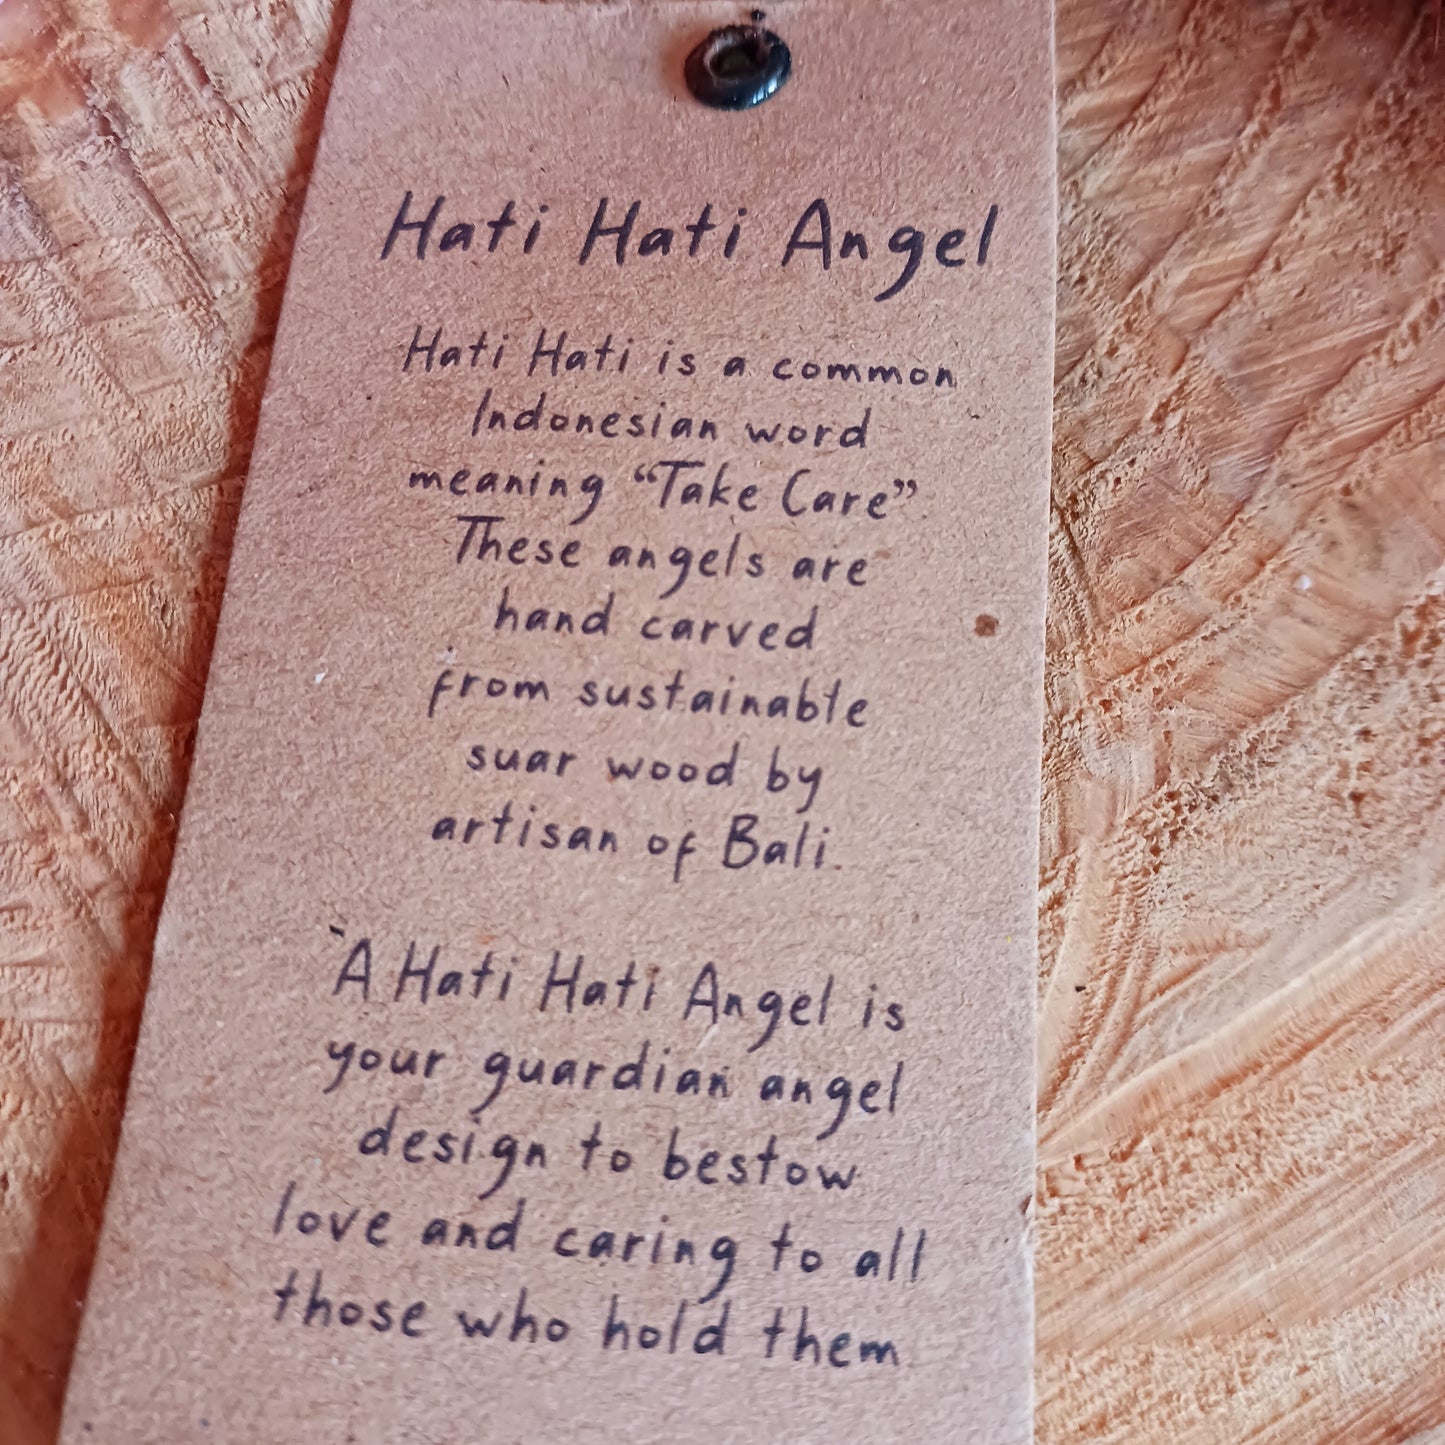 Hati Hati Angel
Hati Hati is a common
Indonesian word
meaning “Take Care”.
These angels are
hand carved
from sustainable
suar wood by
artisan of Bali.
"A Hati Hati Angel is
your guardian angel
design to bestow
love and caring to all
those who hold them